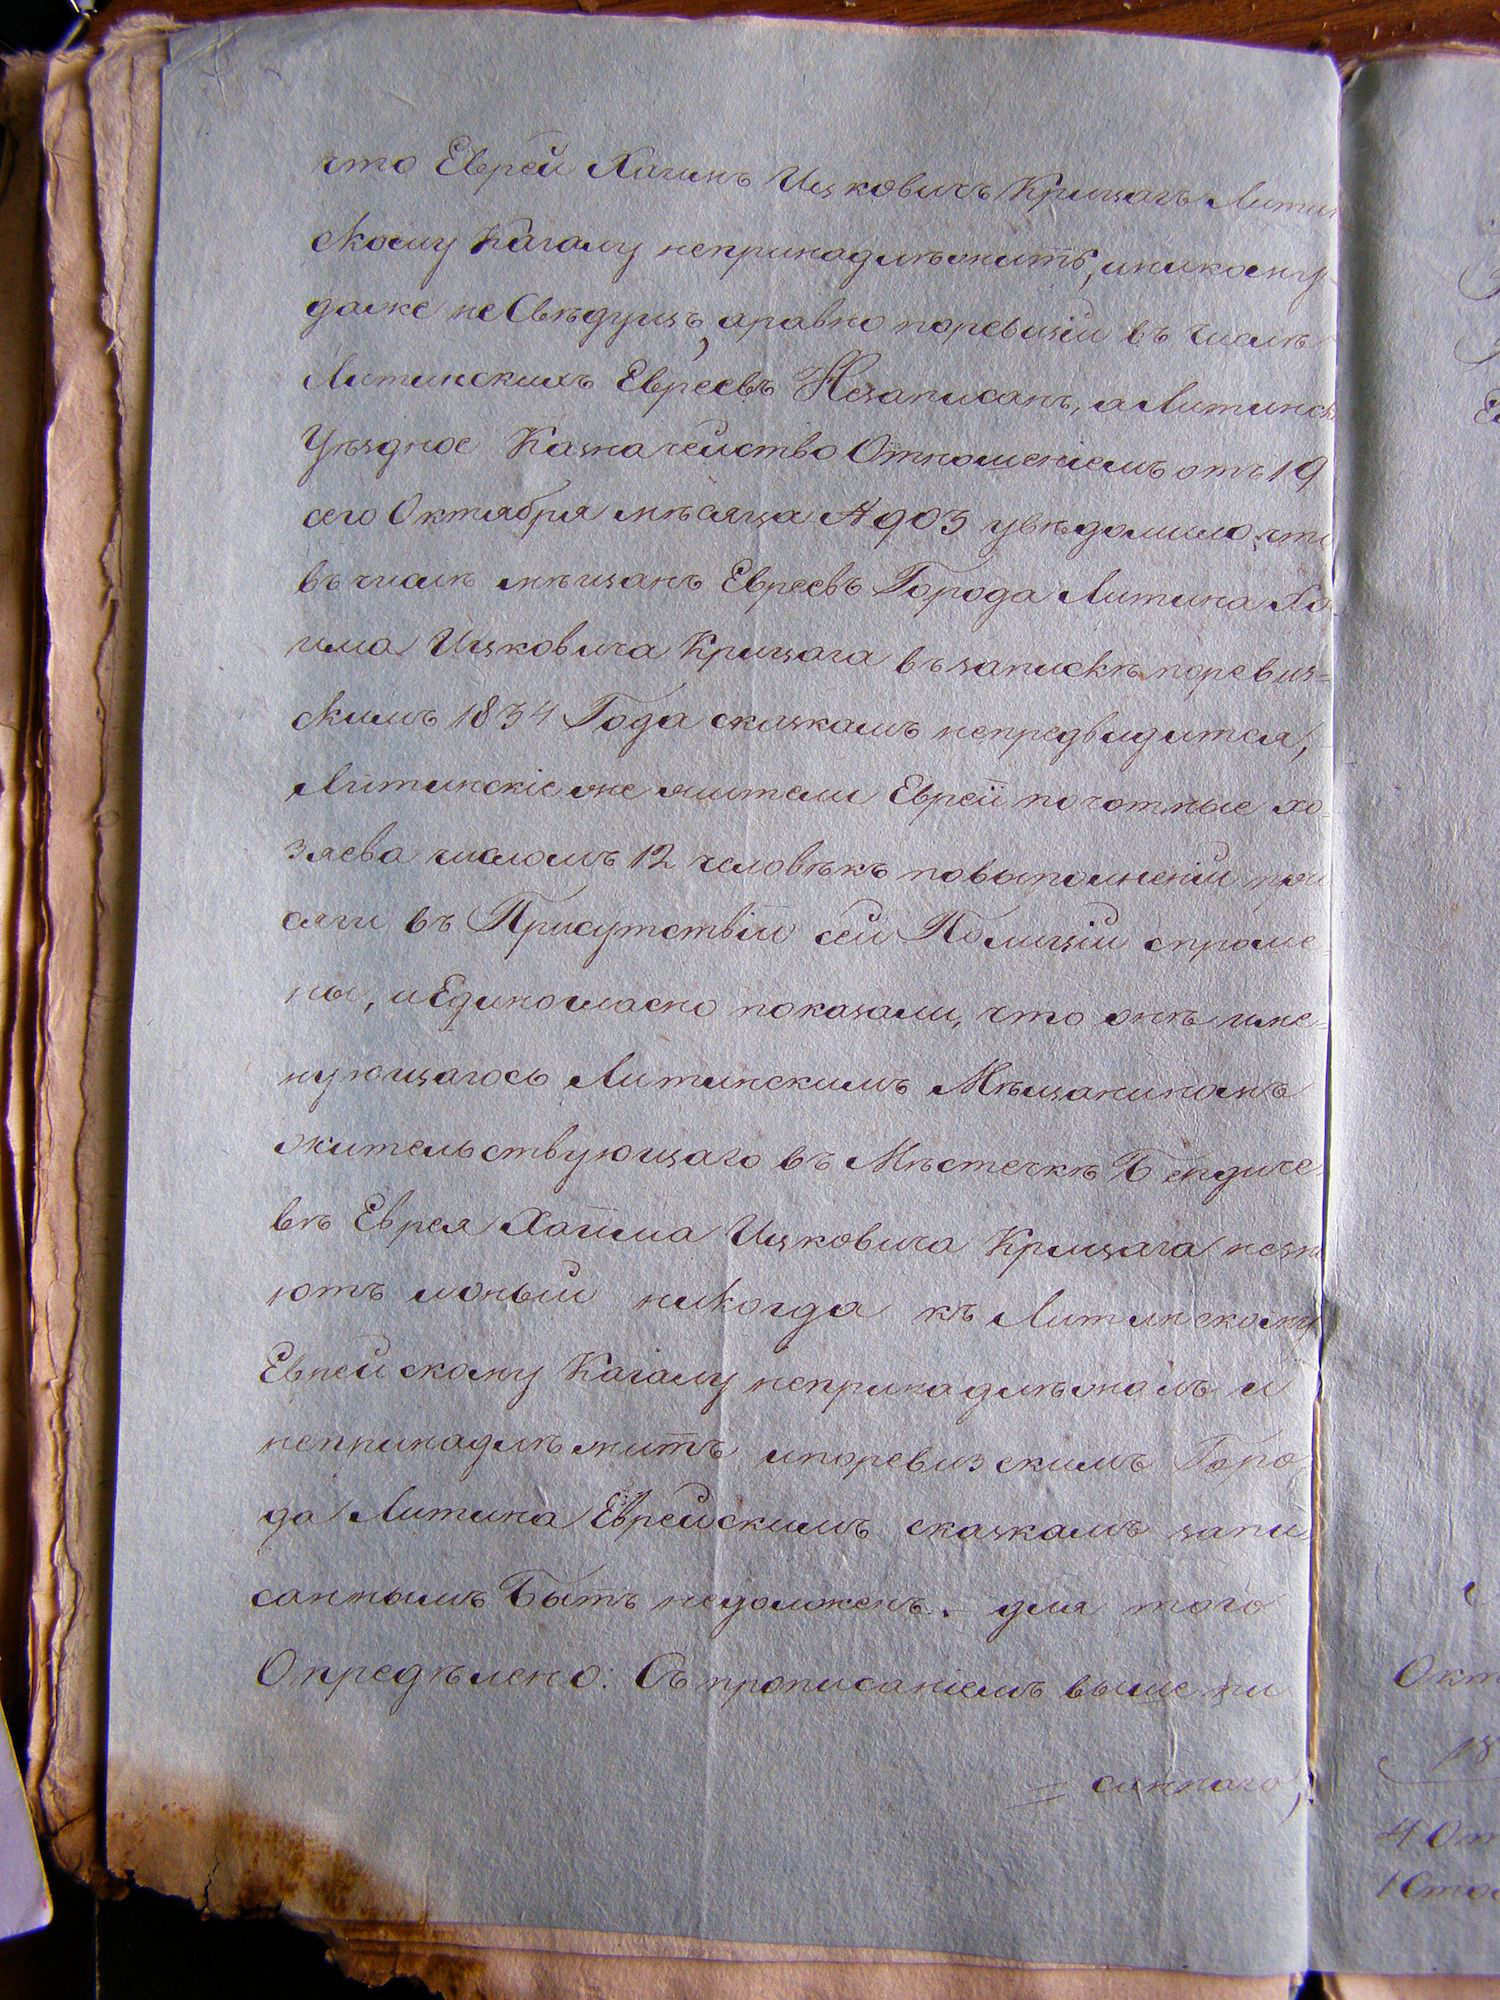 что Еврей Хаимъ Ицковичъ Крицагъ Литин
скому Кагалу непринадлѣжитъ, иникому
даже не Свѣдущъ, аравно поревизіи въ числѣ
Литинскихъ Евреевъ Незаписанъ, а Литинск
Уѣздное Казначейство Отношеніемъ отъ 19
сего Октября мѣсяца № 903 увѣдомило, что
въ числѣ мѣщанъ Евреевъ Города Литина Ха
има Ицковича Крицага въ запискѣ поревиз=
скимъ 1834 Года сказкамъ непредвидится,
Литинскіе же жители Евреи почотные хо=
зяева числомъ 12 человѣкъ повыполненіи при
сяги въ Присутствіи сей Полиціи спроше=
ны, и Единогласно показали, что онѣ име=
нующагось Литинскимъ Мѣщаниномъ
жительствующаго въ Мѣстечкѣ Бердиче
вѣ Еврея Хаима Ицковича Крицага незна
ютъ ионый никогда къ Литинскому
Еврейскому Кагалу непринадлѣжалъ и
непринадлѣжитъ ипоревизскимъ Горо
да Литина Еврейскимъ сказкамъ запи
саннымъ Быть недолженъ. – для того
Опредѣлено: Съ прописаніемъ выше пи
= саннаго,
Окт
18
4 От
1 Стол